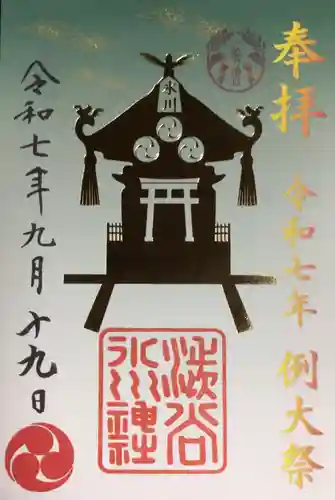 奉拝
令和七年
例大祭
氷川
澁谷
氷川神社
令和七年九月十九日